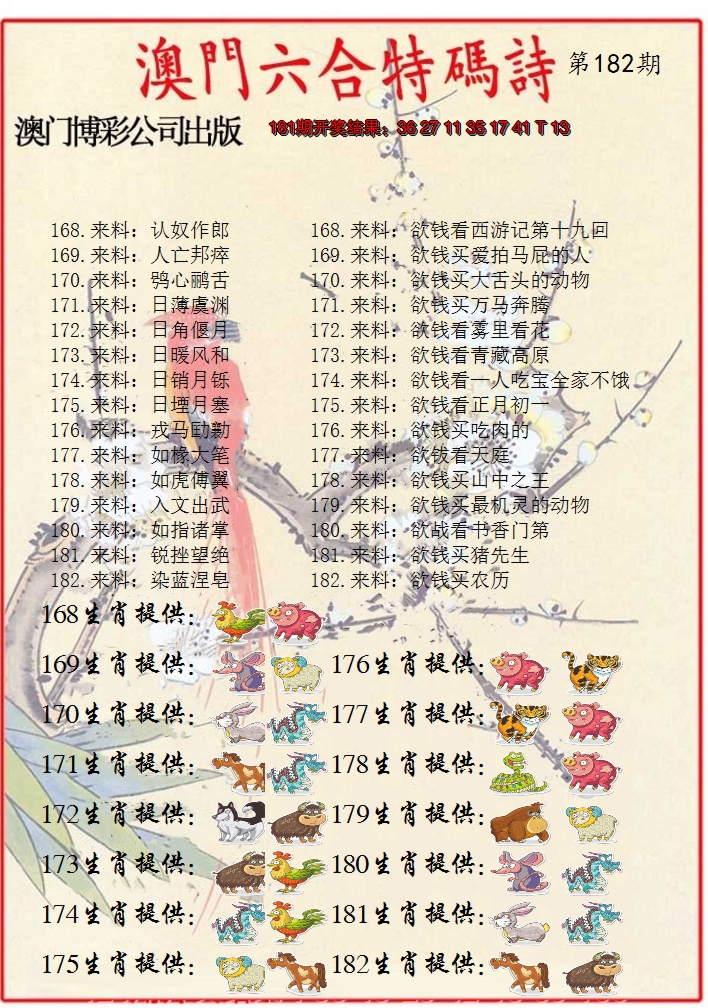 澳門六合特碼詩 第182期
澳门博彩公司出版 181期开奖结果：36 27 11 35 17 41 T 13
168.来料：认奴作郎 168.来料：欲钱看西游记第十九回
169.来料：人亡邦瘁 169.来料：欲钱买爱拍马屁的人
170.来料：鸮心鹂舌 170.来料：欲钱买大舌头的动物
171.来料：日薄虞渊 171.来料：欲钱买万马奔腾
172.来料：日角偃月 172.来料：欲钱看雾里看花
173.来料：日暖风和 173.来料：欲钱看青藏高原
174.来料：日销月铄 174.来料：欲钱看一人吃宝全家不饿
175.来料：日堙月塞 175.来料：欲钱看正月初一
176.来料：戎马劻勷 176.来料：欲钱买吃肉的
177.来料：如椽大笔 177.来料：欲钹看天庭
178.来料：如虎傅翼 178.来料：欲钱买山中之王
179.来料：入文出武 179.来料：欲钱买最机灵的动物
180.来料：如指诸掌 180.来料：欲战看书香门第
181.来料：锐挫望绝 181.来料：欲钱买猪先生
182.来料：染蓝涅皂 182.来料：欲钱买农历
168生肖提供：
169生肖提供： 176生肖提供：
170生肖提供： 177生肖提供：
171生肖提供： 178生肖提供：
172生肖提供： 179生肖提供：
173生肖提供： 180生肖提供：
174生肖提供： 181生肖提供：
175生肖提供： 182生肖提供：